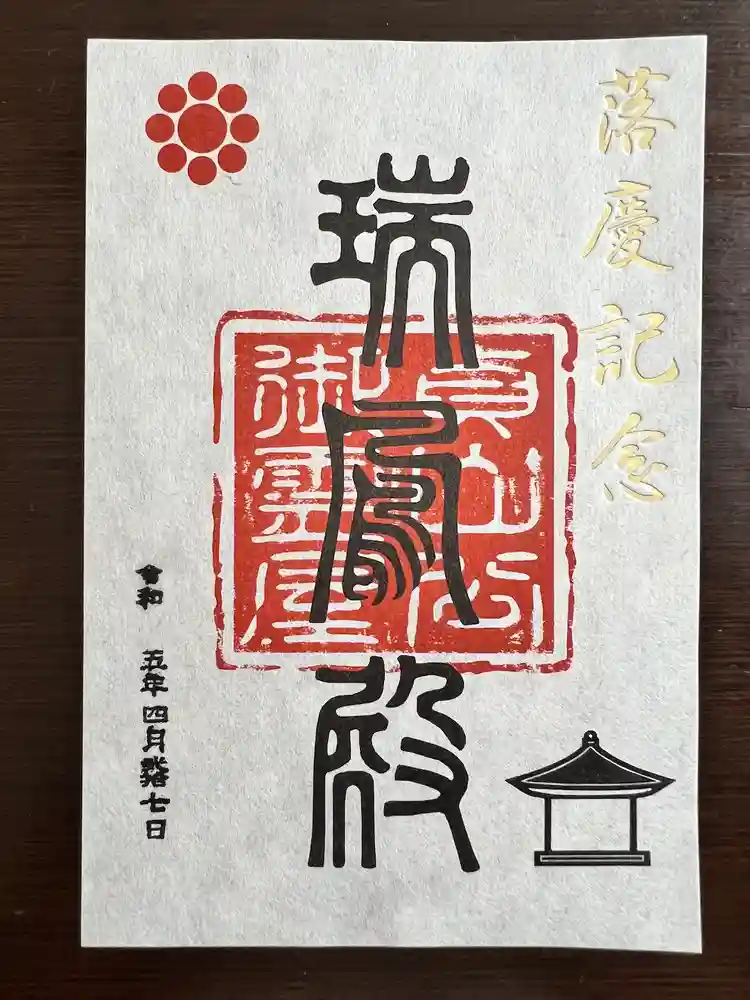 落慶記念
瑞鳳殿
貞山公
御霊屋
令和 五年四月 七日